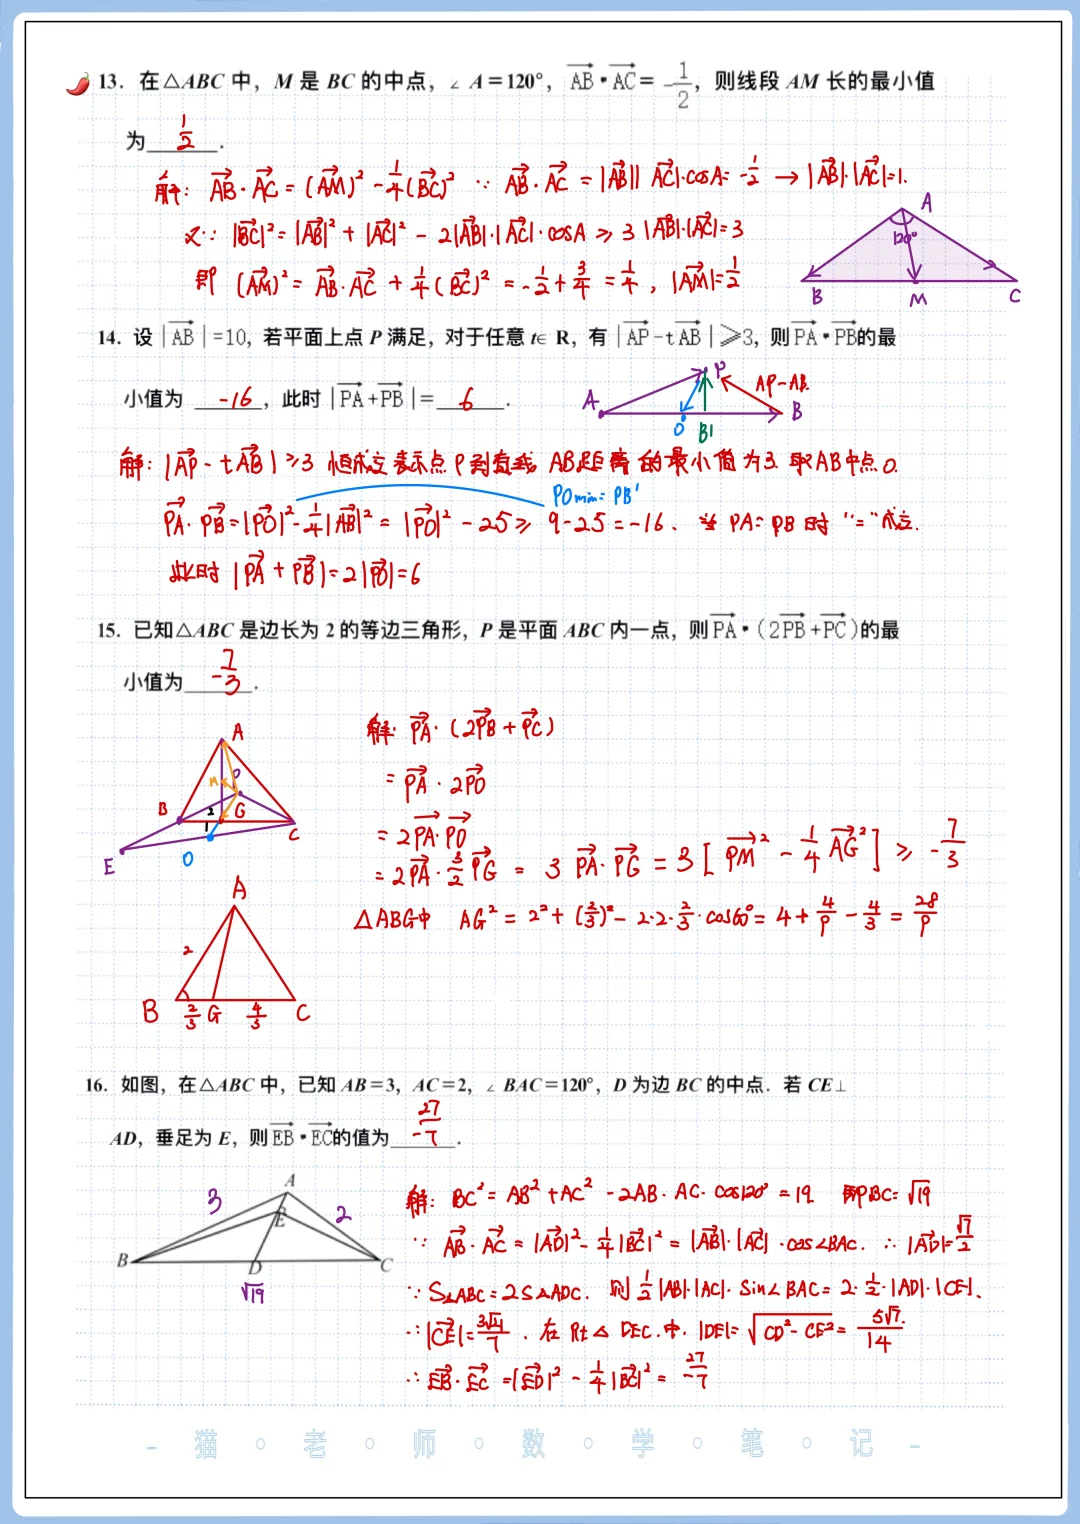 13. 在△ABC 中，M 是 BC 的中点，∠A＝120°，AB·AC＝-1/2，则线段 AM 长的最小值
为 1/2 .
解：AB·AC=(AM)²-1/4(BC)² ∵ AB·AC=|AB||AC|·cosA=-1/2→|AB|·|AC|=1.
又∵|BC|²=|AB|²+|AC|²-2|AB|·|AC|·cosA≥3|AB|·|AC|=3
即 (AM)²=AB·AC+1/4(BC)²=-1/2+3/4=1/4，|AM|=1/2
A
120°
B M C
14. 设|AB|=10，若平面上点 P 满足，对于任意 t∈R，有|AP-tAB|≥3，则PA·PB的最
小值为 -16 ，此时|PA+PB|= 6 .
A P AP-AB
O B1 B
解：|AP-tAB|≥3 恒成立表示点P到直线AB距离的最小值为3. 取AB中点O.
POmin=PB'
PA·PB=|PO|²-1/4|AB|²=|PO|²-25≥9-25=-16. 当PA=PB时“=”成立.
此时|PA+PB|=2|PO|=6
15. 已知△ABC 是边长为 2 的等边三角形，P 是平面 ABC 内一点，则PA·(2PB+PC)的最
小值为 -7/3 .
A
M P
B 2 G C
1
E O
解：PA·(2PB+PC)
=PA·2PO
=2PA·PO
=2PA·3/2PG=3PA·PG=3[PM²-1/4AG²]≥-7/3
△ABG中 AG²=2²+(2/3)²-2·2·2/3·cos60°=4+4/9-4/3=28/9
A
2
B 2/3 G 4/3 C
16. 如图，在△ABC 中，已知 AB＝3，AC＝2，∠BAC＝120°，D 为边 BC 的中点．若 CE⊥
AD，垂足为 E，则EB·EC的值为 -27/7 .
A
3 E 2
B D C
√19
解：BC²=AB²+AC²-2AB·AC·cos120°=19 即BC=√19
∵AB·AC=|AD|²-1/4|BC|²=|AB|·|AC|·cos∠BAC. ∴|AD|=√7/2
∵S△ABC=2S△ADC. 则1/2|AB|·|AC|·Sin∠BAC=2·1/2·|AD|·|CE|.
∴|CE|=3√21/7. 在Rt△DEC中. |DE|=√CD²-CE²=5√7/14.
∴EB·EC=|ED|²-1/4|BC|²=-27/7
- 猫·老·师·数·学·笔·记 -